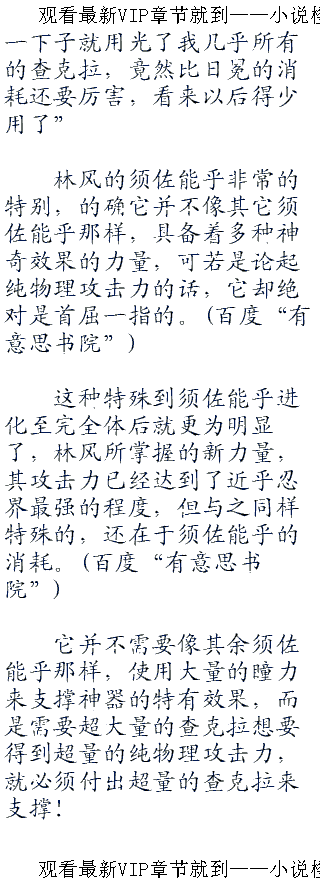 观看最新VIP章节就到——小说
一下子就用光了我几乎所有
的查克拉，竟然比日冕的消
耗还要厉害，看来以后得少
用了”
林风的须佐能乎非常的
特别，的确它并不像其它须
佐能乎那样，具备着多种神
奇效果的力量，可若是论起
纯物理攻击力的话，它却绝
对是首屈一指的。(百度“有
意思书院”)
这种特殊到须佐能乎进
化至完全体后就更为明显
了，林风所掌握的新力量，
其攻击力已经达到了近乎忍
界最强的程度，但与之同样
特殊的，还在于须佐能乎的
消耗。(百度“有意思书
院”)
它并不需要像其余须佐
能乎那样，使用大量的瞳力
来支撑神器的特有效果，而
是需要超大量的查克拉想要
得到超量的纯物理攻击力，
就必须付出超量的查克拉来
支撑！
观看最新VIP章节就到——小说